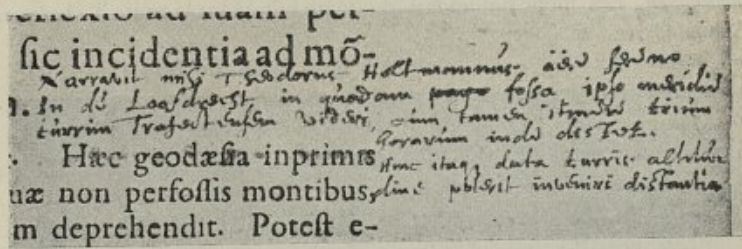 sic incidentia ad mō-
Narravit mihi Theodorus Holtmannus aëre sereno
In de Loosdrecht in quodam pago fossa ipso meridie
turrim Trajectensem videri, cum tamen itinere trium
horarum inde distet.
Hæc geodæsia inprimis
Hinc itaq, data turris altitudine
uæ non perfossis montibus,
poterit inveniri distantia
m deprehendit. Potest e-